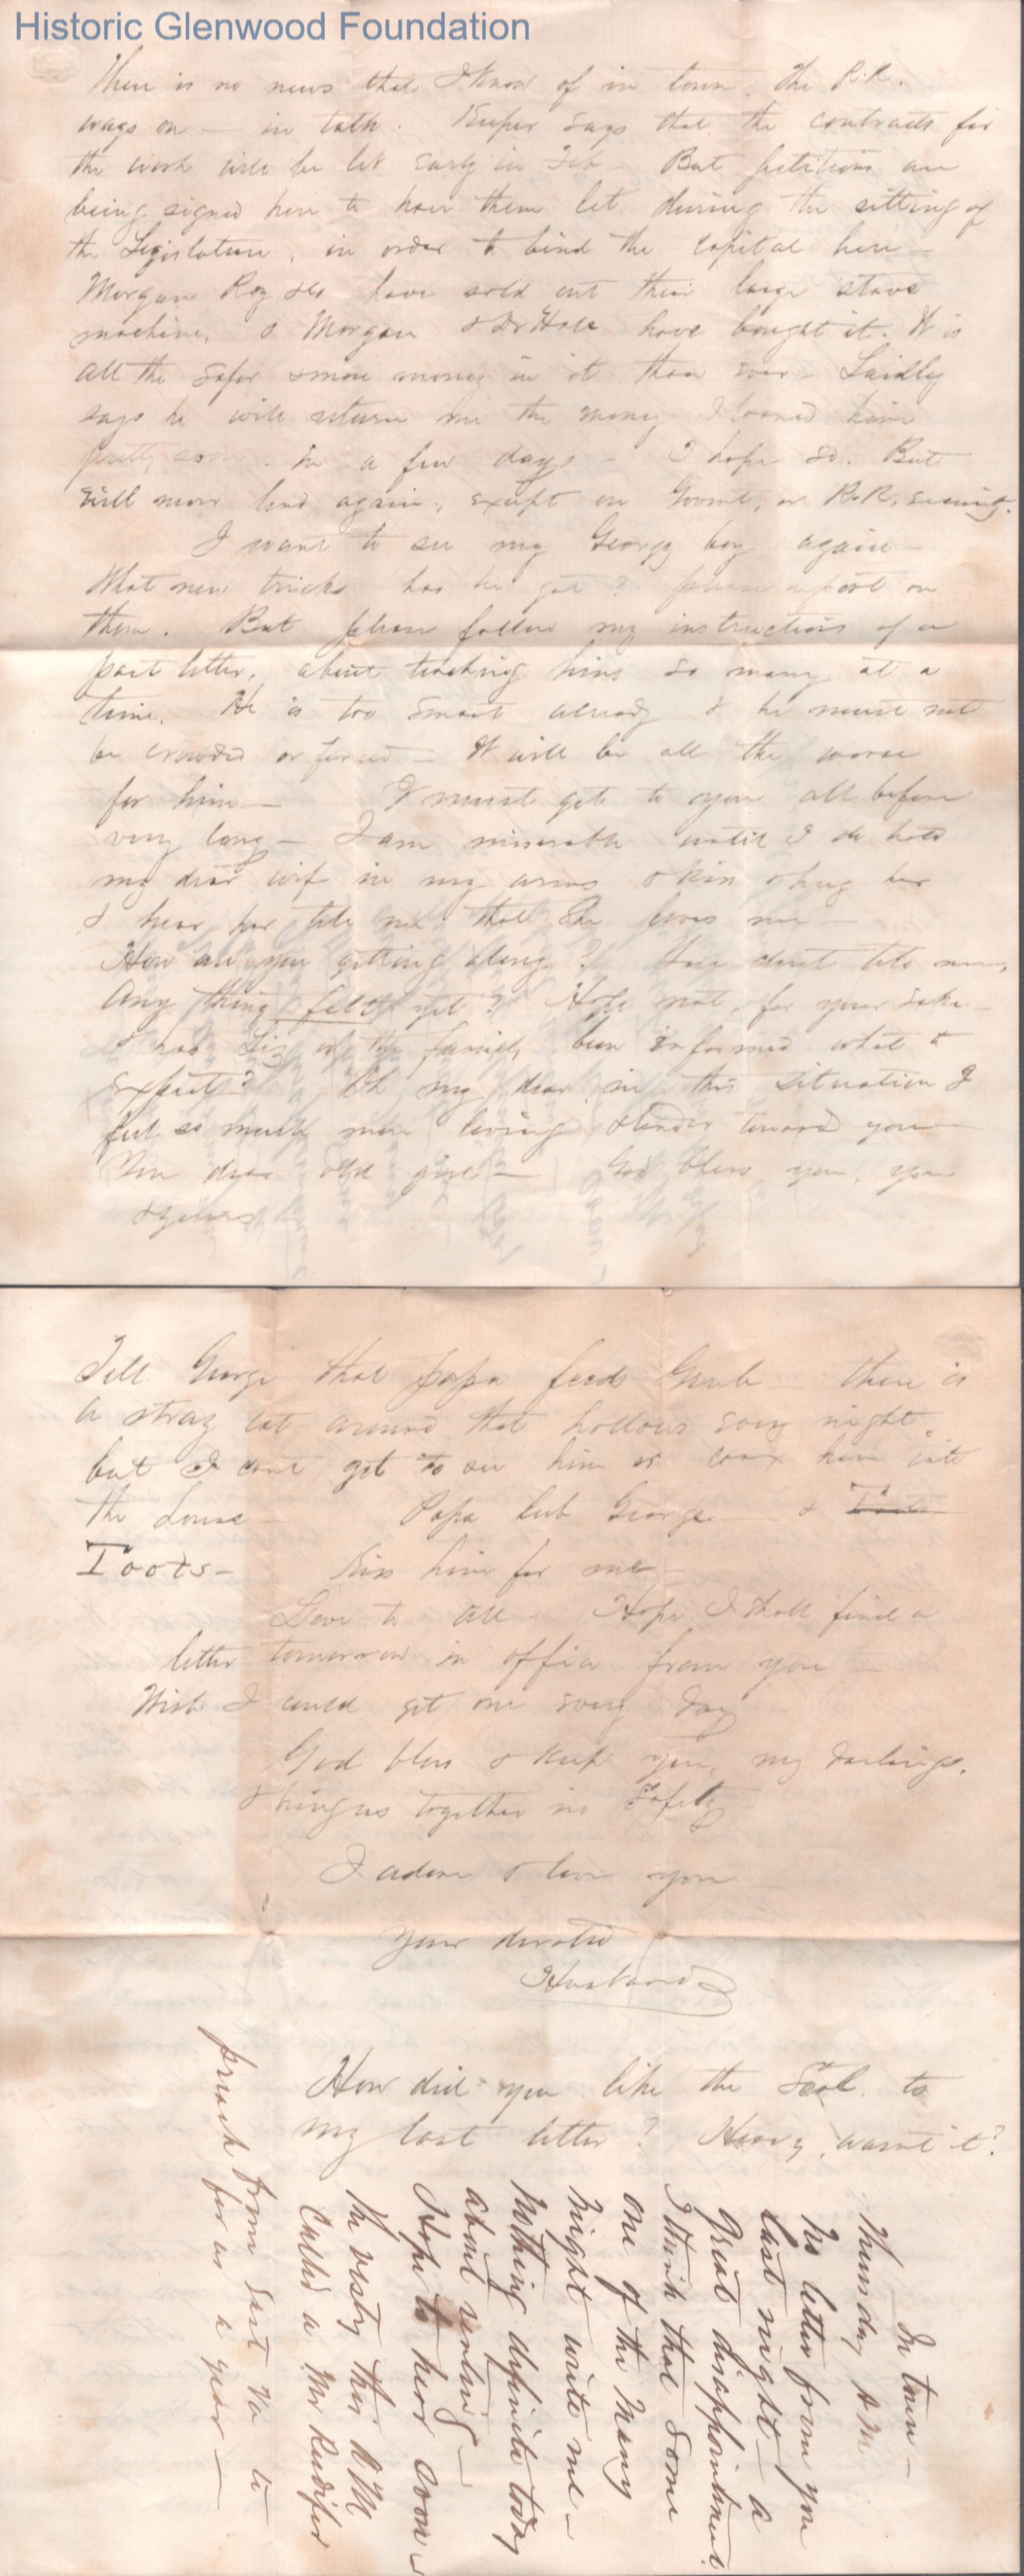 Historic Glenwood Foundation
There is no news that I know of in town. The R.R.
wags on — in talk. says that the contracts for
the work will be let early in Feb — But petitions are
being signed here to have them let during the sitting of
the Legislature, in order to bind the Capital here —
Morgan have sold out their large stave
machine, & Morgan & Dr Hale have bought it. It is
all the safer & more money in it than ever — Laidley
says he will return me the money I loaned him
pretty soon. In a few days — I hope so. But
will never lend again, except on Govmt, or R.R. security.
I want to see my Georgy boy again —
What new tricks has he got? please report on
them. But please follow my instructions of a
past letter, about teaching him so many at a
time. He is too smart already & he must not
be crowded or forced — It will be all the worse
for him — I must get to you all before
very long — I am miserable until I do hold
my dear wife in my arms & kiss & hug her
& hear her tell me that she loves me —
How are you getting along? You dont tell me,
Any thing felt yet? Hope not, for your sake —
& has Liz or the family been informed what to
expect? Oh my dear, in this situation I
feel so much more loving & tender toward you —
You dear old girl — God bless you, you
& yours
Tell George that papa feeds — there is
a stray cat around that hollows every night
but I cant get to see him or coax him into
the house — Papa lub George — &
Toots — Kiss him for me —
Love to all — Hope I shall find a
letter tomorrow in office from you —
Wish I could get one every day
God bless & keep you, my darlings,
& bring us together in safety
I adore & love you —
Your devoted
Husband
How did you like the Seal to
my last letter? Heavy, wasnt it?
In town —
Thursday A M
No letter from you
last night — a
great disappointment.
I think that some
one of the many
might write me —
Nothing definite today
about renting —
Hope to hear soon —
The vestry this A M
called a Mr
from East Va to
preach for us a year —